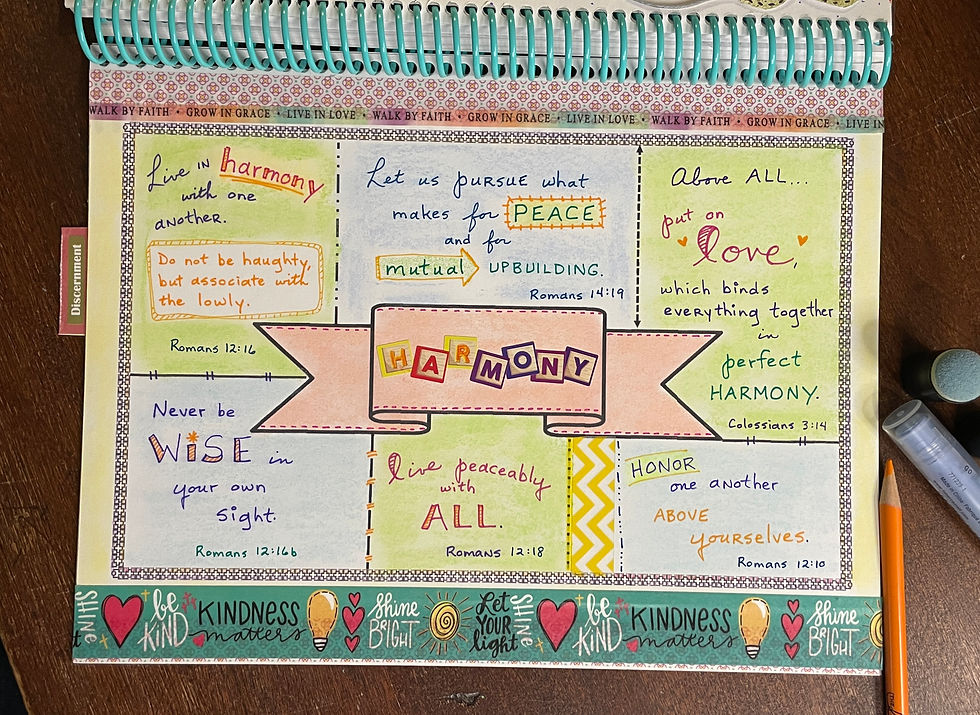 WALK BY FAITH • GROW IN GRACE • LIVE IN LOVE • WALK BY FAITH • GROW IN GRACE • LIVE IN LOVE • WALK BY FAITH • GROW IN GRACE • LIVE IN
Discernment
Live IN harmony
with one
another.
Do not be haughty,
but associate with
the lowly.
Romans 12:16
Let us pursue what
makes for PEACE
and for
mutual UPBUILDING.
Romans 14:19
Above ALL...
put on
love,
which binds
everything together
in
perfect
HARMONY.
Colossians 3:14
HARMONY
Never be
WiSE in
your own
sight.
Romans 12:16b
live peaceably
with
ALL.
Romans 12:18
HONOR
one another
ABOVE
yourselves.
Romans 12:10
SHiNe
be KiND
KINDNESS matters
Shine BRiGHT
Let YOUR light SHiNe
be KiND
KINDNESS matters
Shine BRiGHT